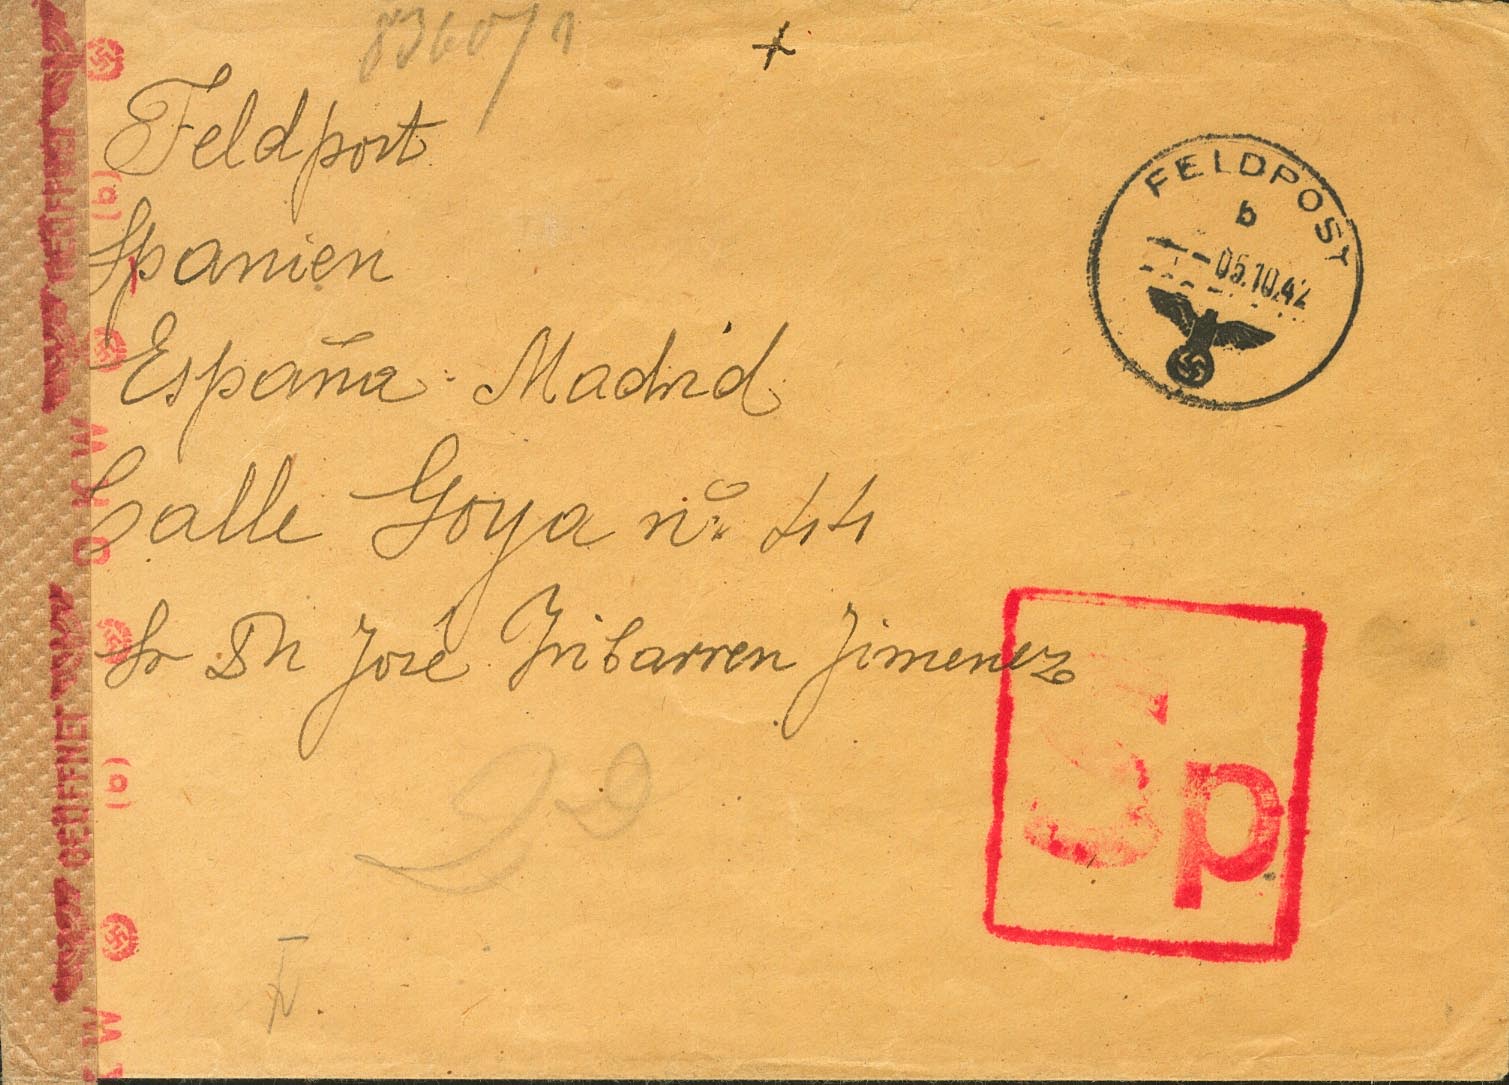 8360/1
Feldport
Spanien
España - Madrid
Calle Goya nº 44
Sr Dn José Iribarren Jimenez
FELDPOST
b
-05.10.42
Sp
GEÖFFNET
(a)
O K W
GEÖFFNET
(a)
K W